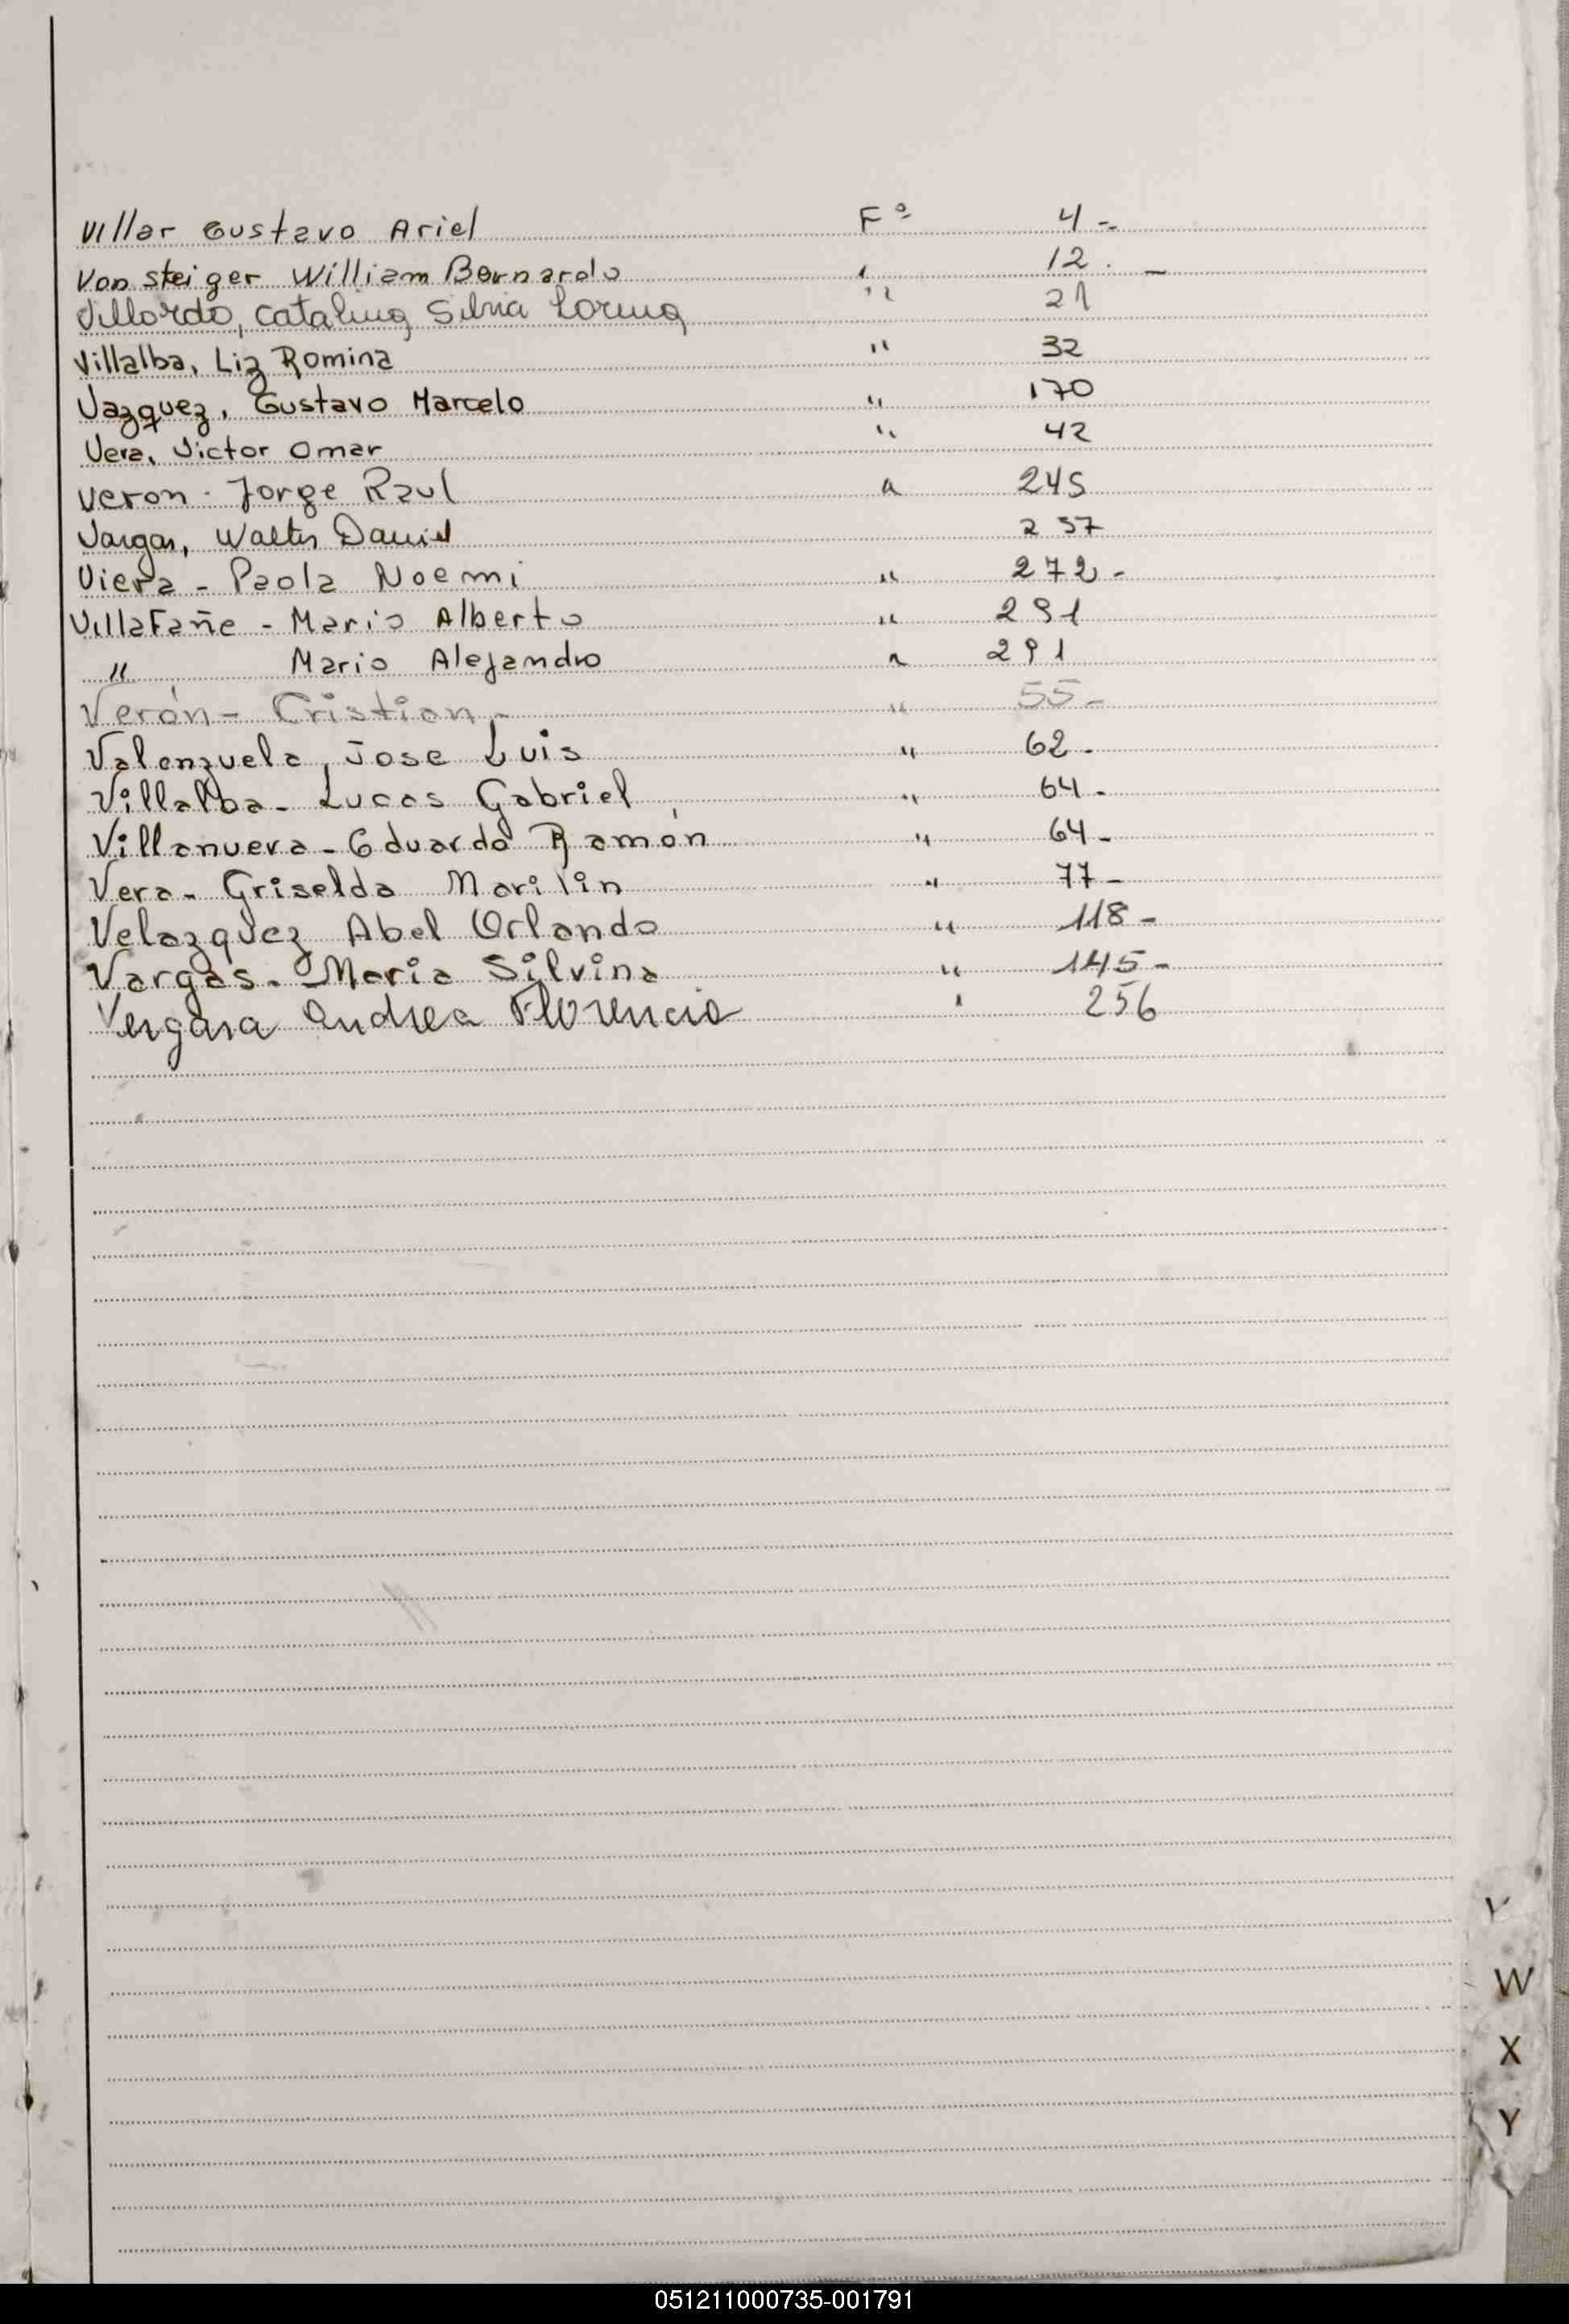 Villar Gustavo Ariel Fº 4-
Von steiger William Bernardo " 12. -
Villordo, Catalina Silvia Lorena " 21
Villalba, Liz Romina " 32
Vazquez, Gustavo Marcelo " 170
Vera, Victor Omar " 42
Veron - Jorge Raul " 245
Vargas, Walter Daniel 257
Viera - Paola Noemi " 272-
VillaFañe - Mario Alberto " 291
" Mario Alejandro " 291
Verón - Cristian - " 55-
Valenzuela, Jose Luis " 62-
Villalba - Lucas Gabriel " 64-
Villanueva - Eduardo Ramón " 64-
Vera - Griselda Marilin " 77-
Velazquez Abel Orlando " 118-
Vargas - Maria Silvina " 145-
Vergara Andrea Florencia " 256
V
W
X
Y
051211000735-001791